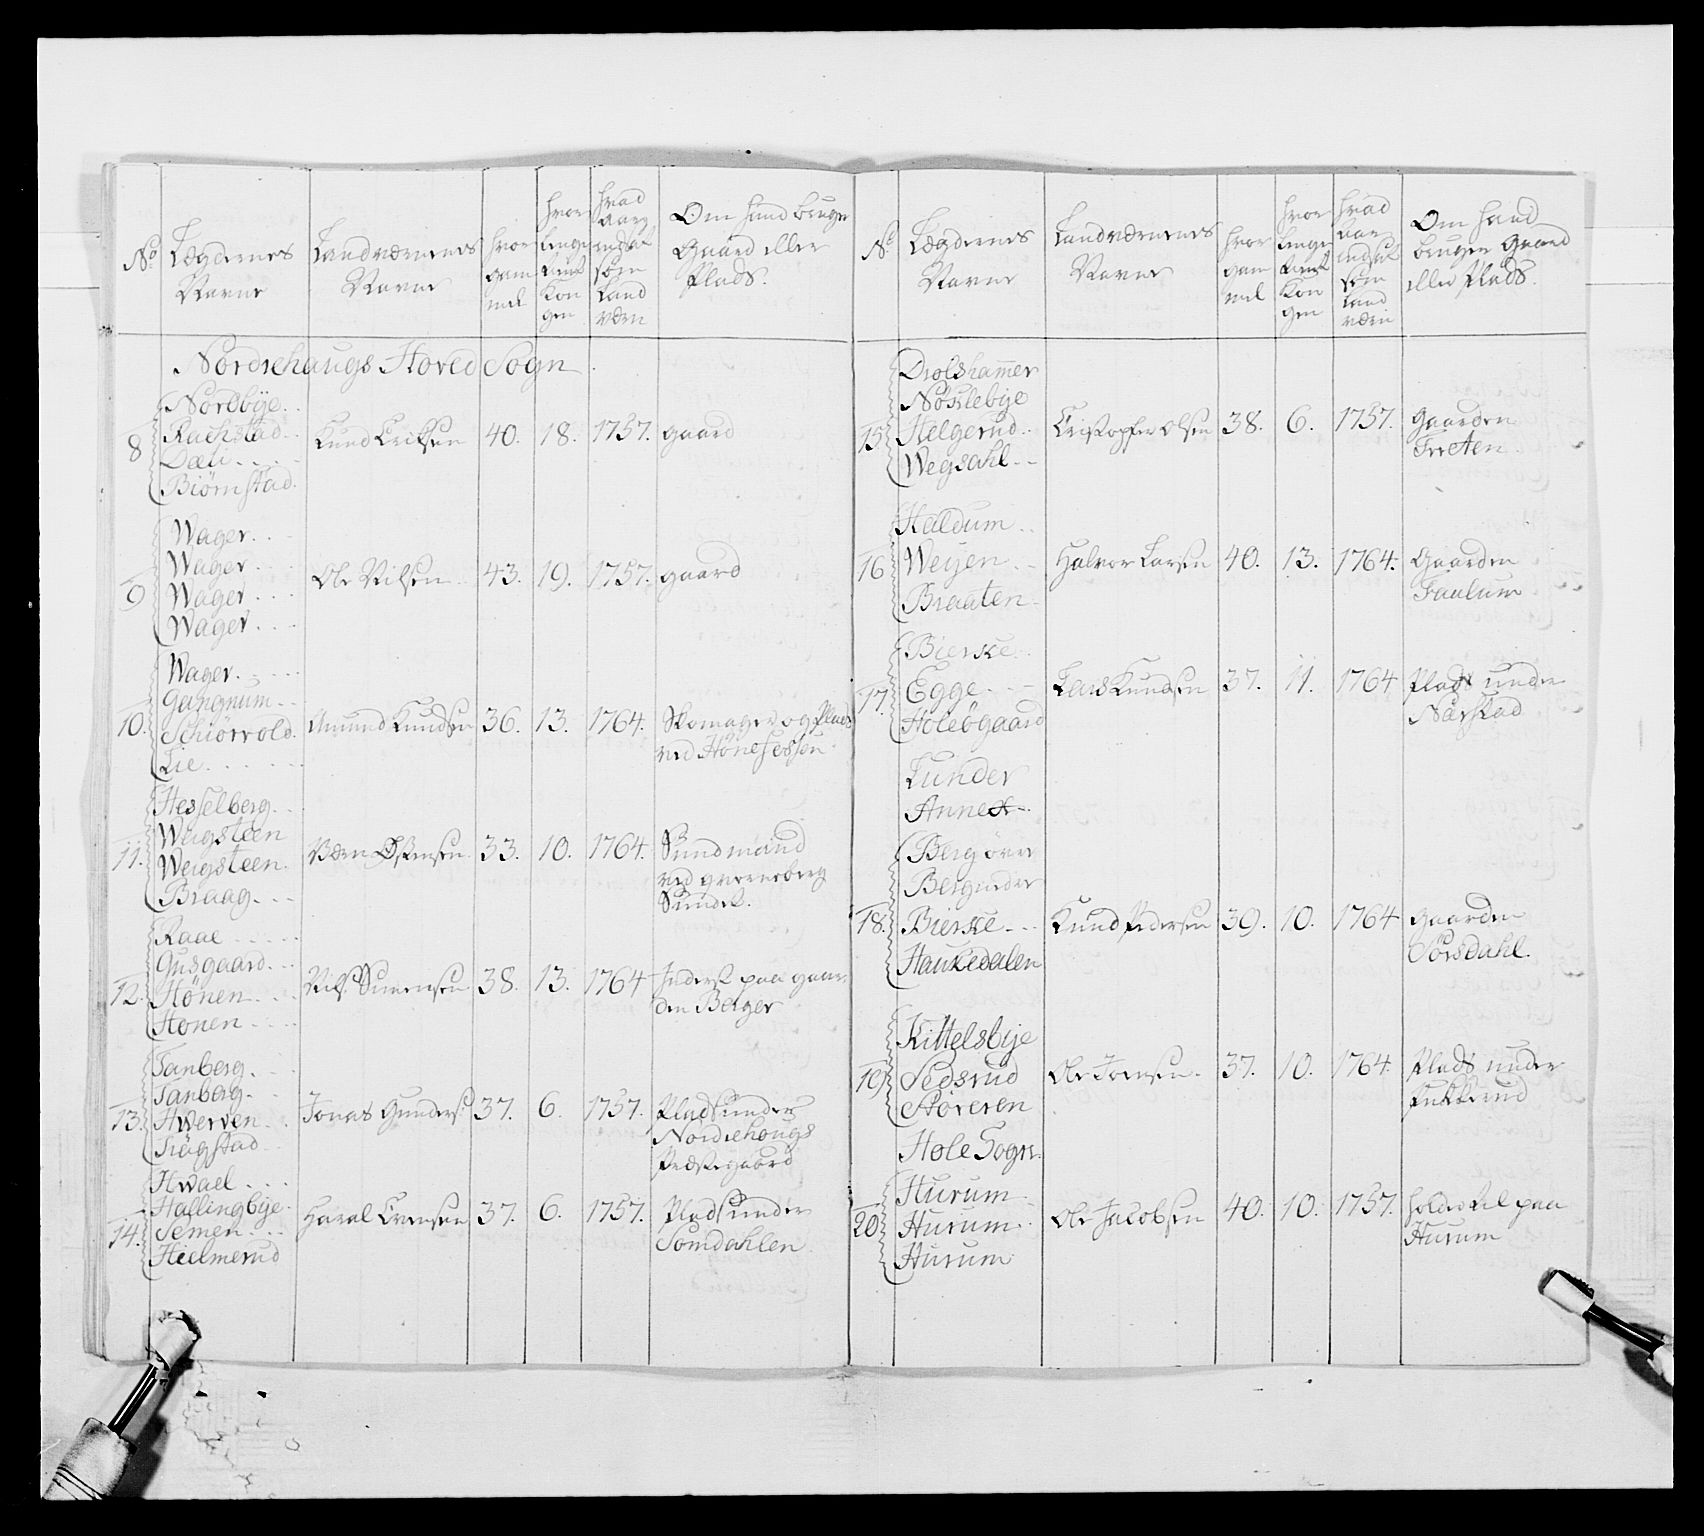 No
Lægdernes
Navne
Landværnernes
Navne
hvor
gam
mel
hvor
lenge
tient
Kon
gen
hvad
Aar
indsat
som
Land
værn
Om hand bruger
Gaard eller
Plads.
Nordrehaugs Hoved Sogn
8
Nordbye
Rachstad
Dæli
Biørnstad
Knud Erichsen 40. 18. 1757. gaard
9
Wager
Wager
Wager
Wager
Ole Nilsen 43. 19. 1757. gaard
10.
Wager
Gangnum
Schiørvold
Lie
Amund Knudsen 36. 13. 1764. Skomager og Plads
ved Hønefossen
11.
Hesselberg
Weigsteen
Weigsteen
Braag
Østensen 33. 10. 1764. Sundmand
ved
Sundet.
12.
Raae
Gusgaard
Hønen
Hønen
Nils Simensen 38. 13. 1764 Inderst paa gaar
den Berger
13.
Tanberg
Tanberg
Hwerven
Trøgstad
Jonas Gunders: 37. 6. 1757. Plads under
Nordrehougs
Præstegaard
14.
Hwael
Hallingbye
Semen
Hielmerud
Haral Evensen 37. 6. 1757. Plads under
Somdahlen
No
Lægdernes
Navne
Landværnernes
Navne
hvor
gam
mel
hvor
lenge
tient
Kon
gen
hvad
Aar
indsat
som
land
værn
Om hand
bruger Gaard
eller Plads.
15
Drolshammer
Nøstlebye
Helgerud
Wegsahl
Cristopher Olsen 38. 6. 1757. Gaarden
16
Haldum
Weyen
Braaten
Halvor Larsen 40. 13. 1764. Gaarden
17
Bierke
Egge
Holebgaard
Lars Knudsen 37. 11. 1764 Plads under
Nærstad
Lunder
Annex
18.
Berg øver
Berg neder
Bierke
Haukedalen
Knud Pedersen 39. 10. 1764 Gaarden
Sørsdahl.
19
Kittelsbye
Sedsrud
Støveren
Ole Joensen 37. 10. 1764. Plads under
Hole Sogn.
20
Hurum
Hurum
Hurum
Ole Jacobsen 40. 10. 1757. paa
Hurum